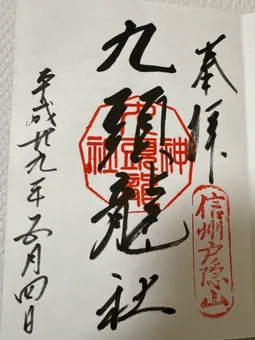 奉拝
信州戸隠山
九頭龍社
平成廿九年五月四日